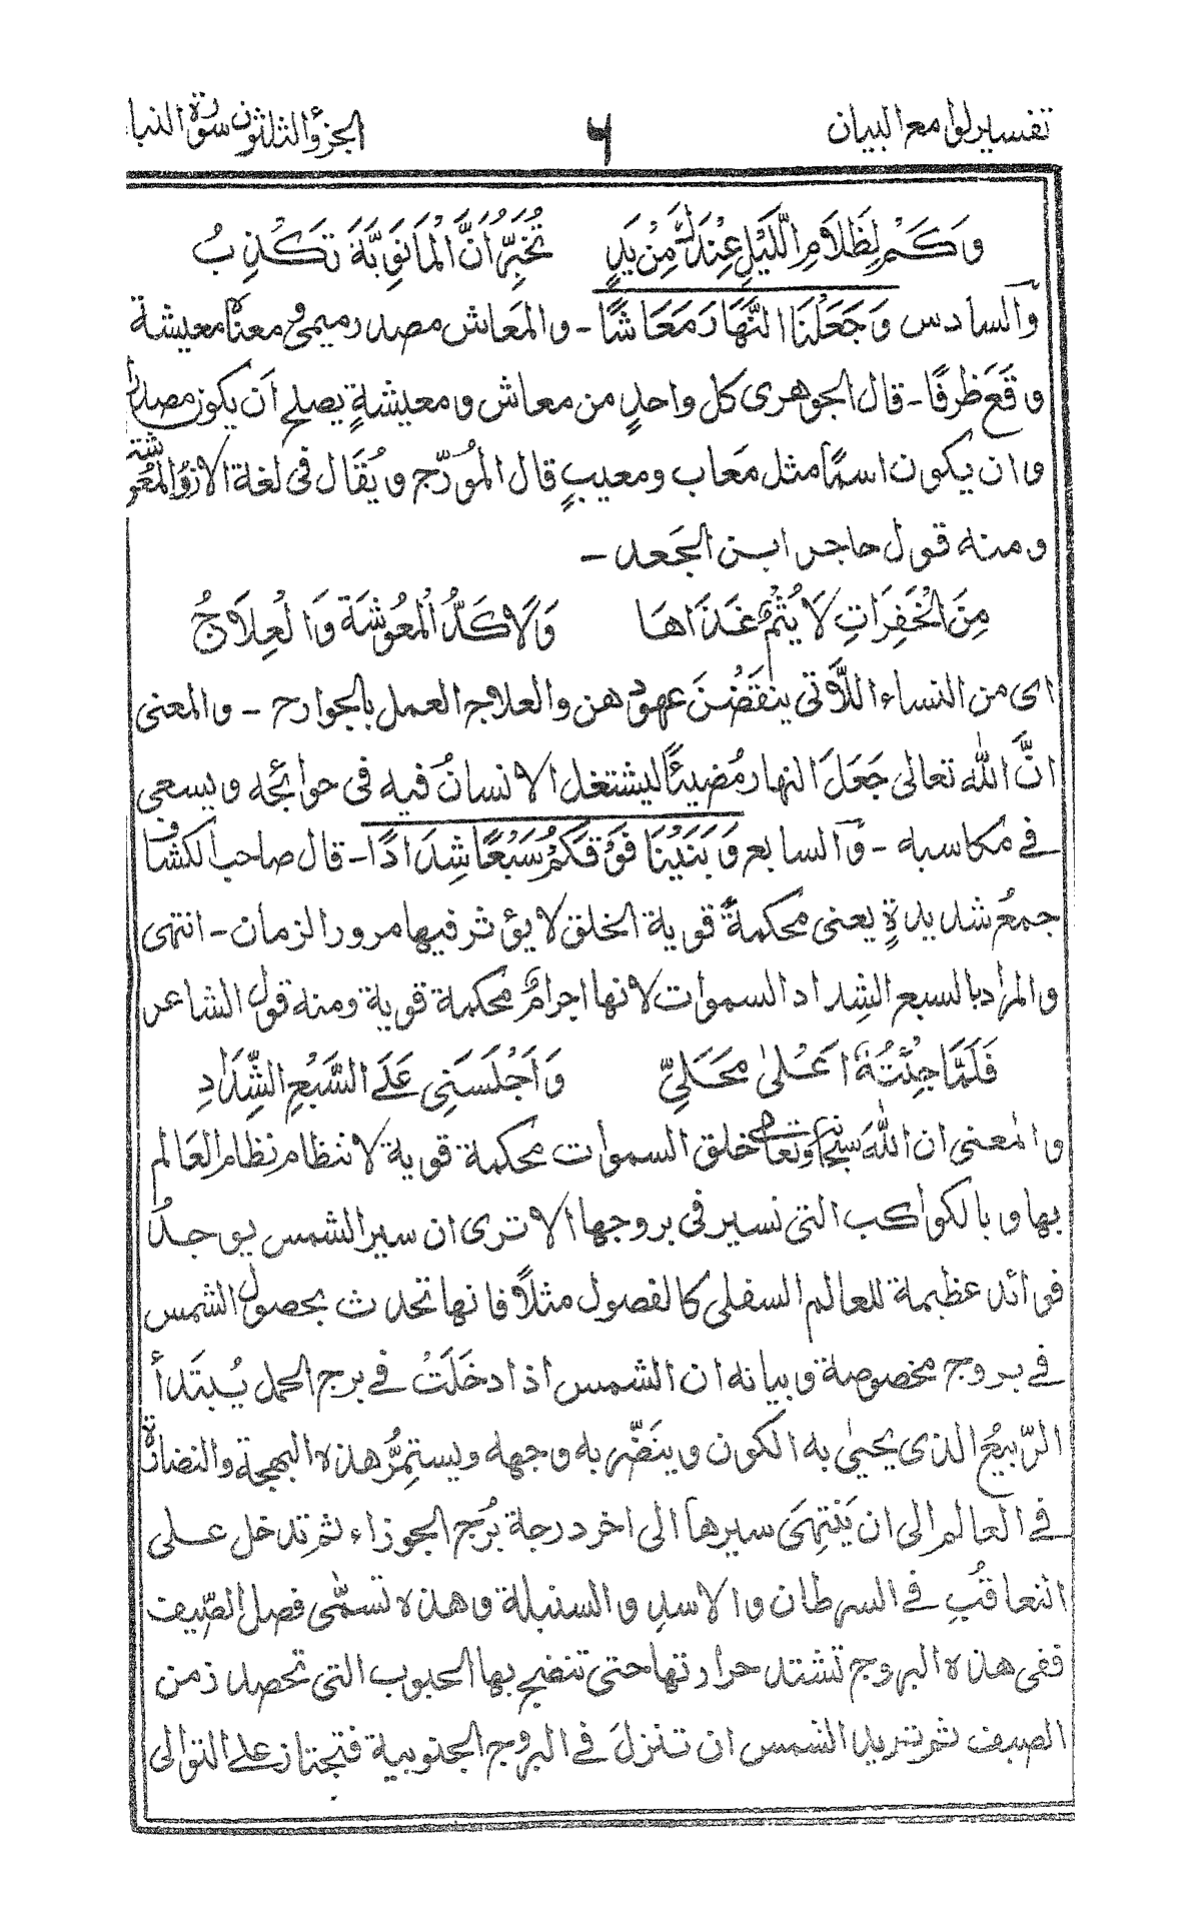 تفسير لوامع البيان ٦ الجزؤ الثلثون سورة النبا
وَكَمْ لِظَلَامِ اللَّيْلِ عِنْدَكَ مِنْ يَدٍ تُخَبِّرُ اَنَّ الْمَانَوِيَّةَ تَكْذِبُ
والسادس وَجَعَلْنَا النَّهَارَ مَعَاشًا - والمَعاش مصدر ميمى و معناه معيشة
وقَعَ ظرفًا - قال الجوهرى كل واحدٍ من معاش ومعيشةٍ يصلح اَن يكون مصدرا
وان يكون اسمًا مثل مَعاب ومعيبٍ قال المُورّج ويُقَال فى لغة الازد المَعُوشة
ومنه قول حاجر ابن الجَعد -
مِنَ الْخَفِرَاتِ لَا يُتْمٌ غَذَاهَا وَلَا كَدُّ الْمَعُوشَةِ وَالْعِلَاجُ
اى من النساء اللّاتى ينقضْنَ عهودهن والعلاج العمل بالجوارح - والمعنى
انَّ اللّٰه تعالى جَعَلَ النهار مُضيئًا ليشتغل الانسانُ فيه فى حوائجه ويسعى
فى مكاسبه - والسابع وَبَنَيْنَا فَوْقَكُمْ سَبْعًا شِدَادًا - قال صاحب الكشاف
جمعُ شديدةٍ يعنى محكمةً قوية الخلق لا يؤثر فيها مرور الزمان - انتهى
والمراد بالسبع الشِداد السموات لانها اجرامٌ محكمة قوية ومنه قول الشاعر
فَلَمَّا جِئْتُهٗ اَعْلىٰ مَحَلِّيْ وَاَجْلَسَنِى عَلَى السَّبْعِ الشِّدَادِ
والمعنى ان اللّٰهَ سبحانه وتعالى خلق السموات محكمة قوية لانتظام نظام العَالم
بها وبالكواكب التى تسير فى بروجها الا ترى ان سير الشمس يوجدُ
فوائد عظيمة للعالم السفلى كالفصول مثلاً فانها تحدث بحصول الشمس
فى بروج مخصوصة وبيانه ان الشمس اذا دخَلَتْ فى برج الحمل يُبتَدأ
الرّبيعُ الذى يحيىٰ به الكون وينَضّر به وجهه ويستمِرُّ هذه البهجة والنضارة
فى العالم الى ان يَنتهىَ سيرها الى اخر درجة بُرج الجوزاء ثم تدخل على
التعاقُبِ فى السرطان والاسدِ والسنبلة وهذه تسمّٰى فصل الصّيف
ففى هذه البروج تشتد حرارتها حتى تنضج بها الحبوب التى تحصد زمن
الصيف ثم تريد الشمس ان تنزلَ فى البروج الجنوبية فتجتاز على التوالى